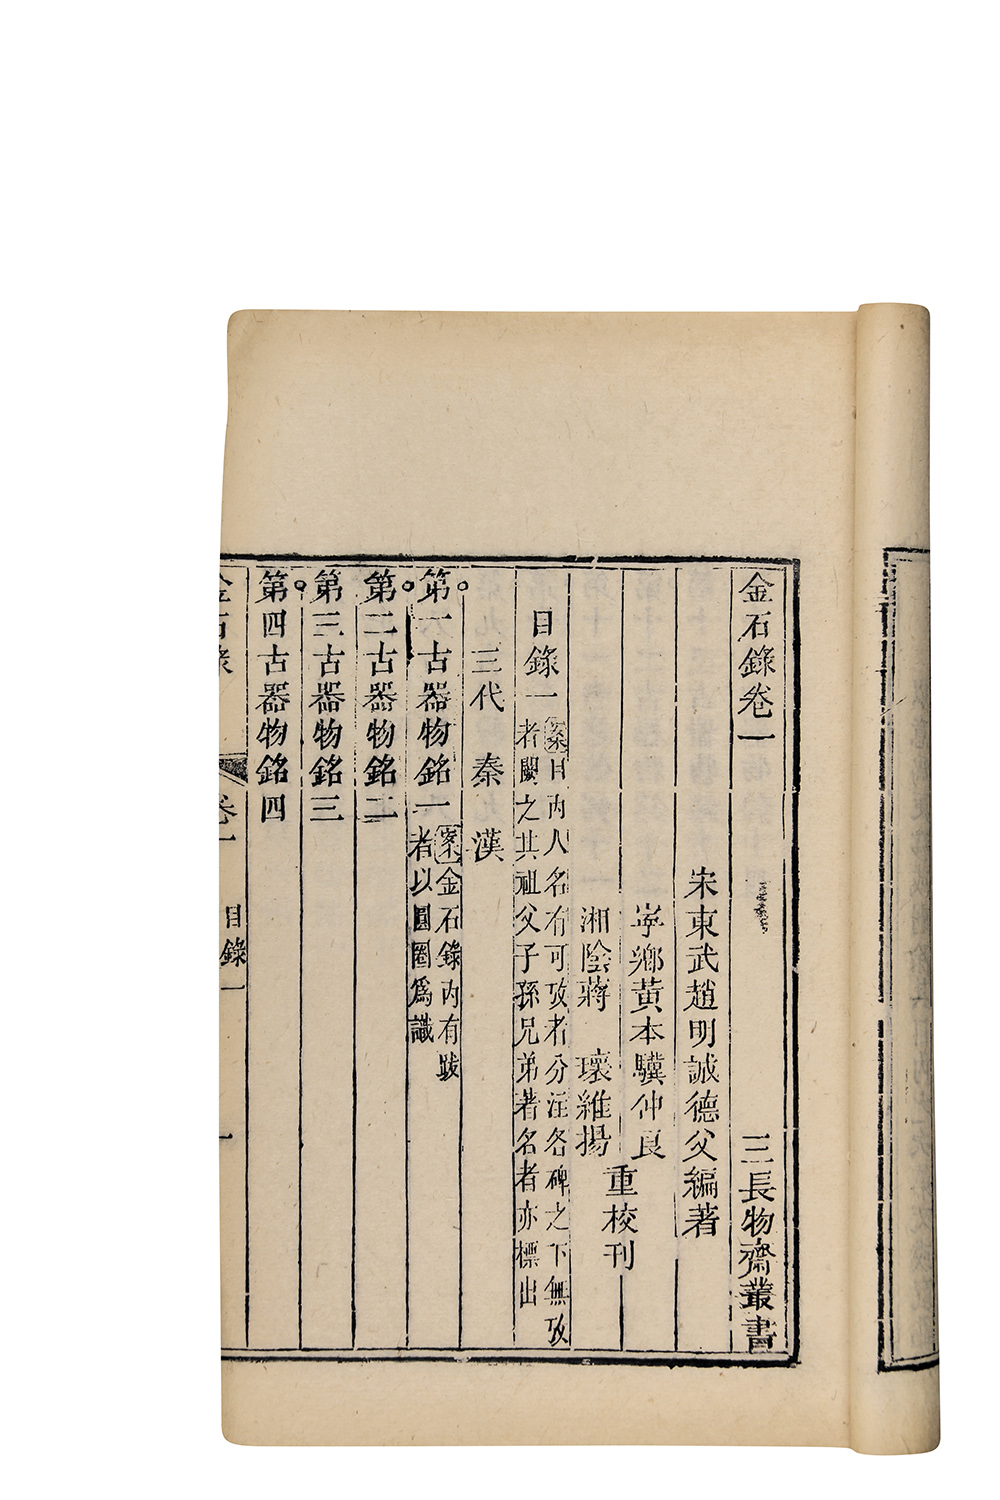 金石錄卷一　三長物齋叢書
宋東武趙明誠德父編著
寧鄉黃本驥仲良
湘陰蔣　瓌維揚
重校刊
目錄一
案目內人名有可攷者分注各碑之下無攷
者闕之其祖父子孫兄弟著名者亦標出
三代　秦　漢
第一古器物銘一
案金石錄內有跋
者以圓圈爲識
第二古器物銘二
第三古器物銘三
第四古器物銘四
金石錄　卷一　目錄一　一